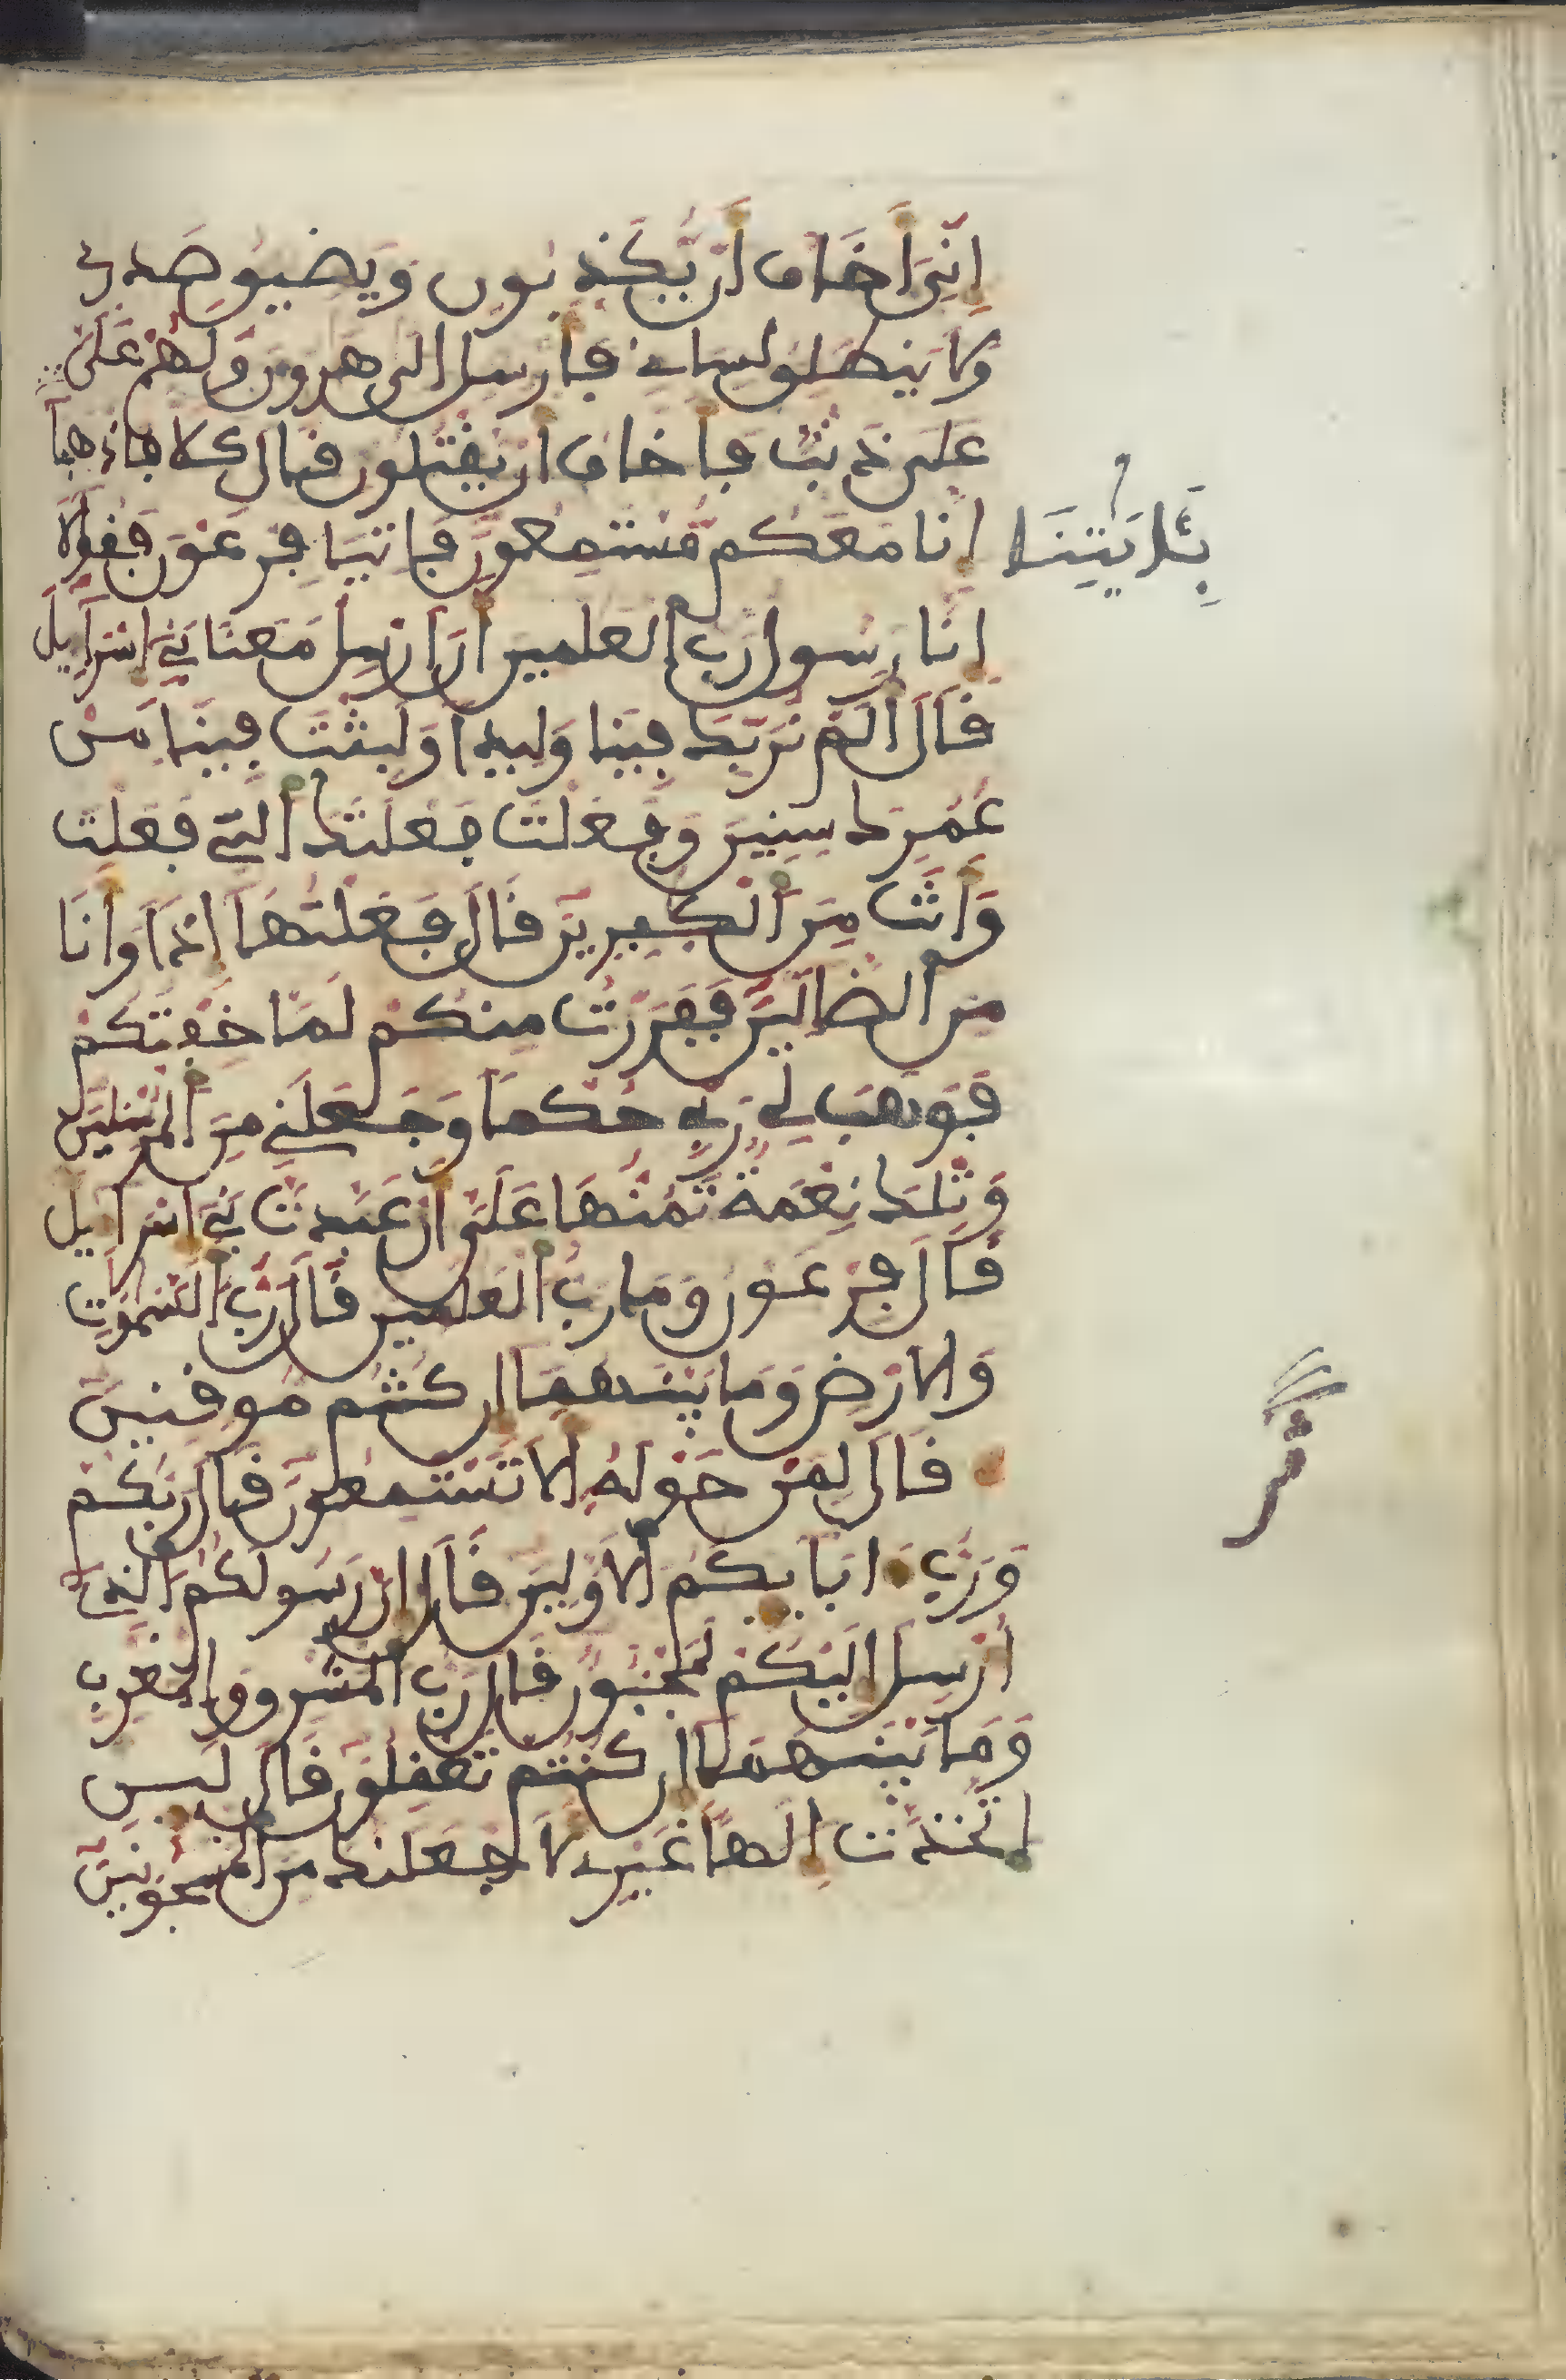 إِنِّيَ أَخَافُ أَنْ يُّكَذِّبُونِ وَيَضِيقُ صَدْرِي
وَلَا يَنطَلِقُ لِسَانِي فَأَرْسِلِ الَى هَرُونَ وَلَهُمْ عَلَيَّ
عَلَيَّ ذَنْبٌ فَأَخَافُ أَنْ يَّقْتُلُونِ قَالَ كَلَّا فَاذْهَبَا
بِـَٔايَتِنَا
إِنَّا مَعَكُم مُّسْتَمِعُونَ فَاتِيَا فِرْعَوْنَ فَقُولَا
إِنَّا رَسُولُ رَبِّ الْعَلَمِينَ أَنَ ارْسِلْ مَعَنَا بَنِي إِسْرَاءِيلَ
قَالَ أَلَمْ نُرَبِّكَ فِينَا وَلِيدًا وَلَبِثْتَ فِينَا مِنْ
عُمُرِكَ سِنِينَ وَفَعَلْتَ فَعْلَتَكَ الَّتِي فَعَلْتَ
وَأَنتَ مِنَ الْكَفِرِينَ قَالَ فَعَلْتُهَا إِذًا وَأَنَا
مِنَ الضَّالِّينَ فَفَرَرْتُ مِنكُمْ لَمَّا خِفْتُكُمْ
فَوَهَبَ لِي رَبِّي حُكْمًا وَجَعَلَنِي مِنَ الْمُرْسَلِينَ
وَتِلْكَ نِعْمَةٌ تَمُنُّهَا عَلَيَّ أَنْ عَبَّدتَّ بَنِي إِسْرَاءِيلَ
قَالَ فِرْعَوْنُ وَمَا رَبُّ الْعَلَمِينَ قَالَ رَبُّ السَّمَوَتِ
وَالَارْضِ وَمَا بَيْنَهُمَا إِن كُنتُم مُّوقِنِينَ
قَالَ لِمَنْ حَوْلَهُ أَلَا تَسْتَمِعُونَ قَالَ رَبُّكُمْ
وَرَبُّ ءَابَايِكُمُ الَاوَّلِينَ قَالَ إِنَّ رَسُولَكُمُ الَّذِي
أُرْسِلَ إِلَيْكُمْ لَمَجْنُونٌ قَالَ رَبُّ الْمَشْرِقِ وَالْمَغْرِبِ
وَمَا بَيْنَهُمَا إِن كُنتُمْ تَعْقِلُونَ قَالَ لَيِنِ
اتَّخَذْتَ إِلَهًا غَيْرِي لَأَجْعَلَنَّكَ مِنَ الْمَسْجُونِينَ